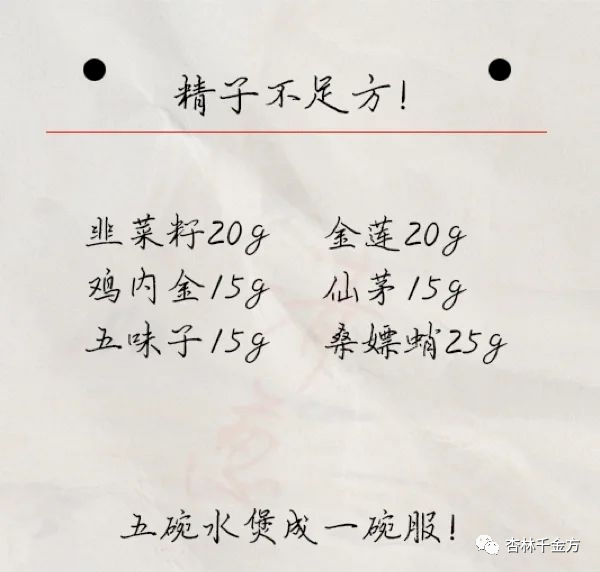 精子不足方!
韭菜籽20g 金莲20g
鸡内金15g 仙茅15g
五味子15g 桑嫖蛸25g
五碗水煲成一碗服!
杏林千金方